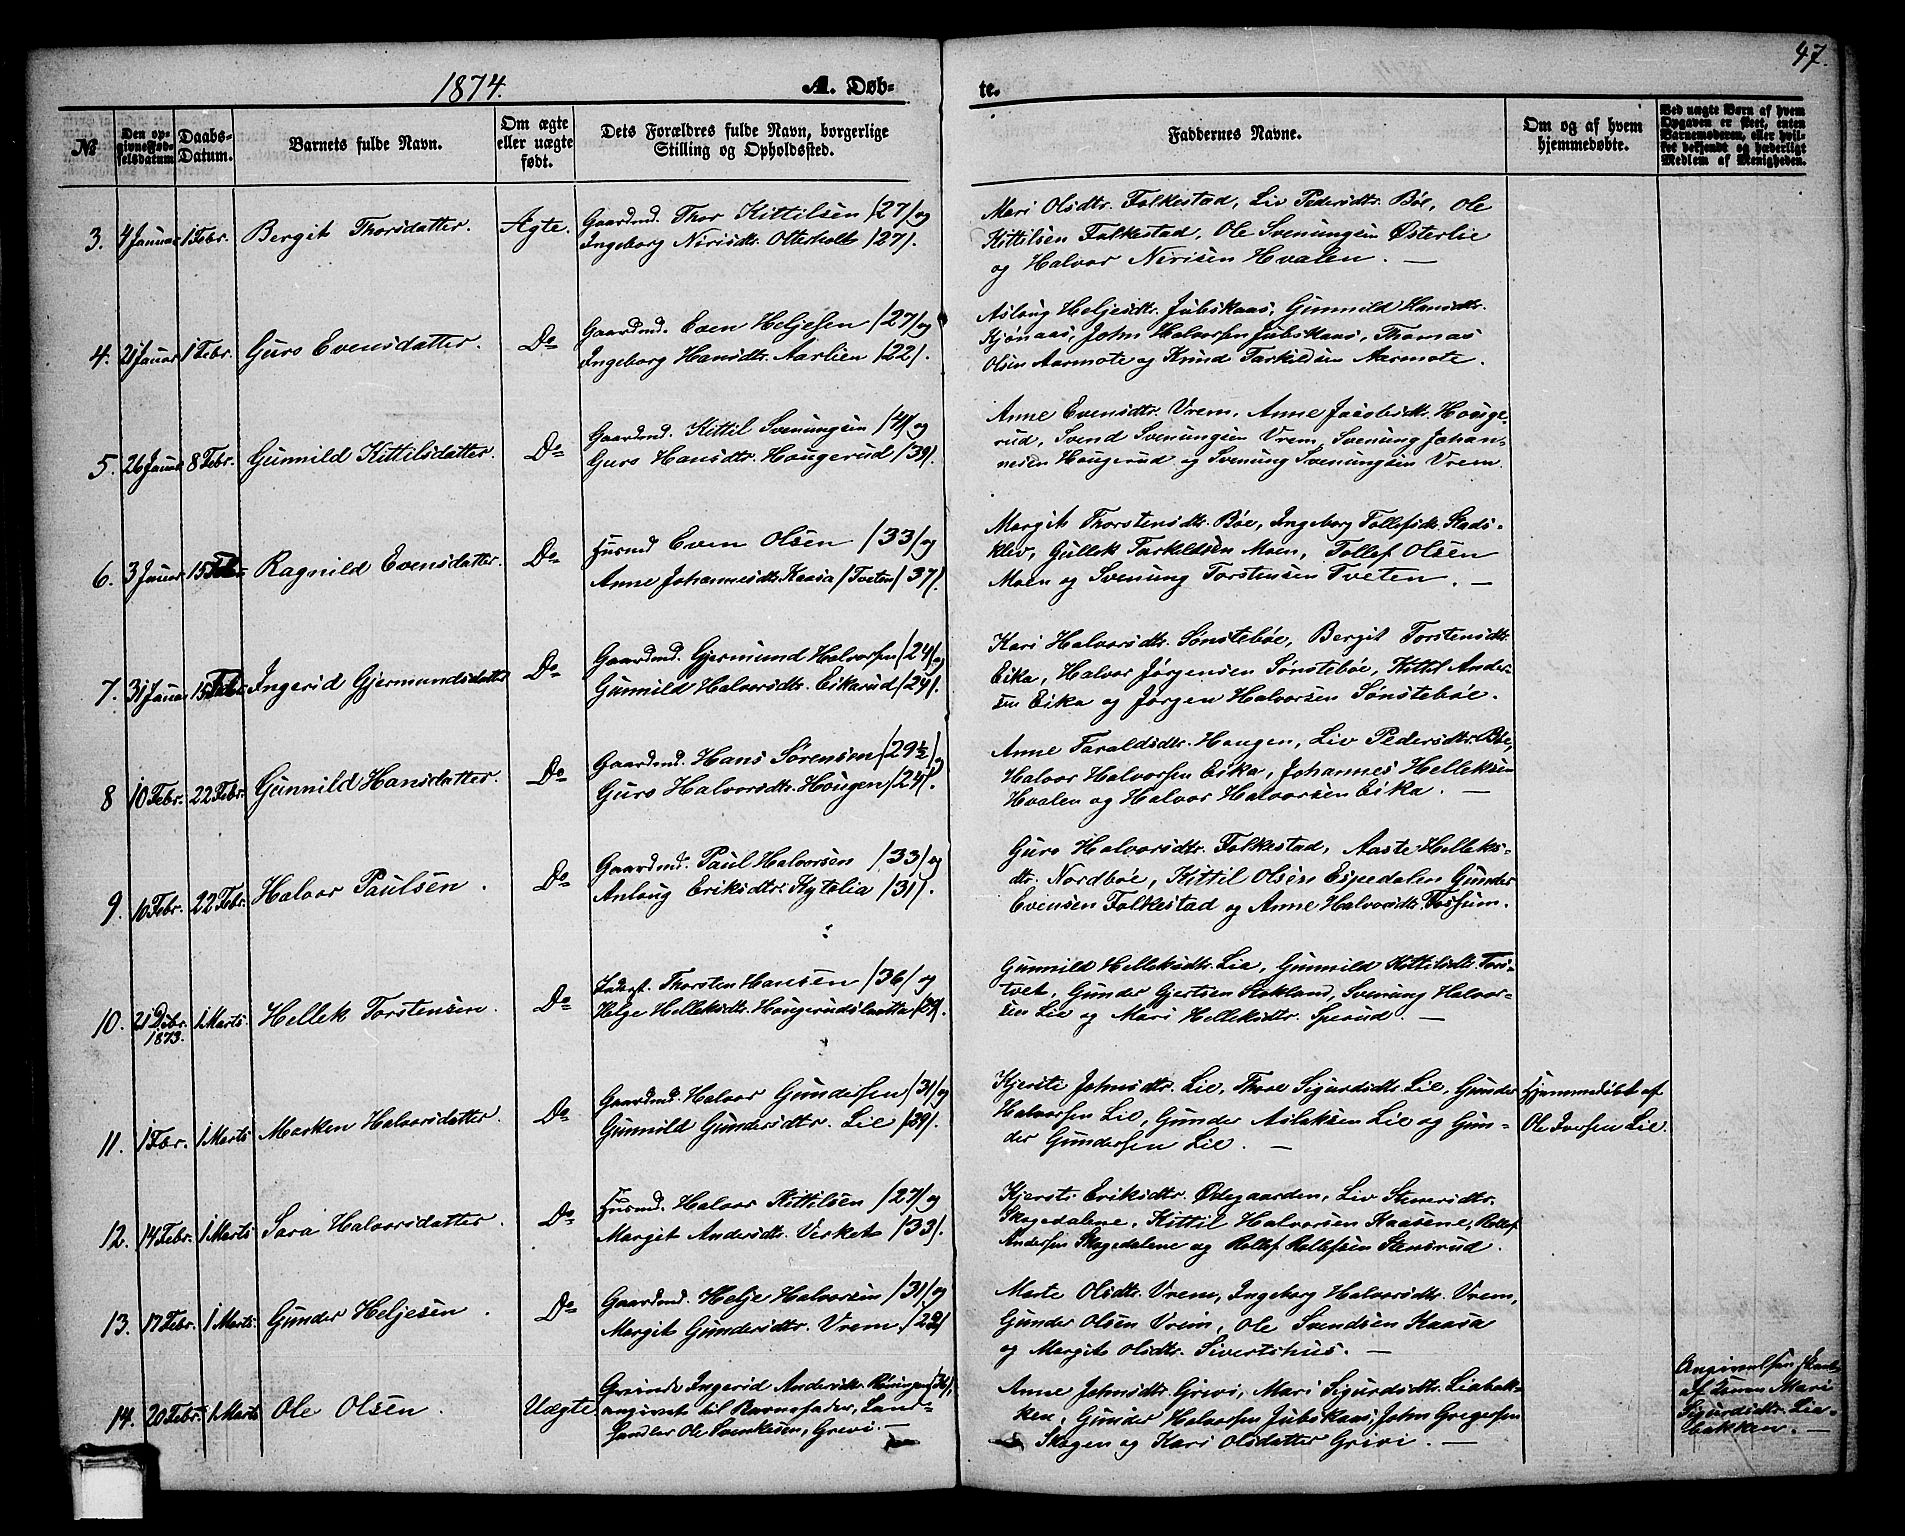 47.
1874.
A. Døb-
te.
№
Den op-
givne Fød-
selsdatum
Daabs-
Datum.
Barnets fulde Navn.
Om ægte
eller uægte
født.
Dets Forældres fulde Navn, borgerlige
Stilling og Opholdssted.
Faddernes Navne.
Om og af hvem
hjemmedøbte.
Ved uægte Børn af hvem
Opgaven er skeet, enten
Barnemoderen, eller hvil-
ket bekjendt og hæderligt
Medlem af Menigheden.
3. 4 Januar 1 Febr. Bergit Thorsdatter. Ægte.
Gaardmd. Thor Kittilsen /27/ og
Ingeborg Nirisdtr. Otterholt /27/.
Mari Olsdtr. Folkestad, Liv Pedersdtr. Bøe, Ole
Kittilsen Folkestad, Ole Svenungsen Østerlie
og Halvor Nirisen Hvalen. —
4. 21 Januar 1 Febr. Guro Evensdatter. Do
Gaardmd. Even Heljesen /27/ og
Ingeborg Hansdtr. Aarlien /22/.
Aslaug Heljesdtr. Jubskaas, Gunnild Hansdtr.
Kjønaas, John Halvorsen Jubskaas, Thomas
Olsen Aarmote og Knud Tarkildsen Aarmote.
5. 26 Januar 8 Febr. Gunnild Kittilsdatter. Do
Gaardmd. Kittil Svenungsen /41/ og
Guro Hansdtr. Hougerud /39/.
Anne Evensdtr. Vrem, Anne Jacobsdt. Houge-
rud, Svend Svenungsen Vrem, Svenung Johan-
nesen Hougerud og Svenung Svenungsen Vrem.
6. 3 Januar 15 Febr. Ragnild Evensdatter. Do
Husmd Even Olsen /33/ og
Anne Johannesdtr. Kaasa /Tveten/ 37/.
Margit Thorstensdtr. Bøe, Ingeborg Tollefsdt. Stads-
klev, Gullek Tarkeldsen Moen, Tollef Olsen
Moen og Svenung Torstensen Tveten. —
7. 31 Januar 15 Febr. Ingerid Gjermundsdatter Do
Gaardmd. Gjermund Halvorsen /24/ og
Gunnild Halvorsdtr. Eikarud /24/.
Kari Halvorsdtr. Sønstebøe, Bergit Torstensdt.
Eika, Halvor Jørgensen Sønstebøe, Kittil Ander-
sen Eika og Jørgen Halvorsen Sønstebøe.
8 10 Febr. 22 Febr. Gunnild Hansdatter. Do
Gaardmd. Hans Sørensen /29½/ og
Guro Halvorsdtr. Hougen /24/.
Anne Taraldsdtr. Hougen, Liv Pedersdtr. Bøe,
Halvor Halvorsen Eika, Johannes Helleksen
Hvalen og Halvor Halvorsen Eika. —
9. 10 Febr. 22 Febr. Halvor Paulsen. Do
Gaardmd. Paul Halvorsen /33/ og
Anlaug Eriksdtr. Hytolia /31/.
Guro Halvorsdtr. Folkestad, Aaste Helleks-
dt. Nordbøe, Kittil Olsen Espedalen Gunder
Evensen Folkestad og Anne Halvorsdt. Fossum.
10. 21 Debr. 1873. 1 Marts Hellek Torstensen. Do
Inderst. Thorsten Hansen /36/ og
Helge Helleksdtr. Hougerudslaatta /29/.
Gunnild Helleksdtr. Lie, Gunnild Kittilsdt. Tors-
tvet, Gunder Gjertsen Stokland, Svenung Halvor-
sen Lie og Mari Helleksdtr. Sperud. —
11. 1 Febr. 1 Marts Marken Halvorsdatter. Do
Gaardmd. Halvor Gundersen /31/ og
Gunnild Gundersdtr. Lie /39/.
Kjersti Johnsdtr. Lie, Thore Sigurdsdt. Lie, Gunder
Halvorsen Lie, Gunder Aslaksen Lie og Gun-
der Gundersen Lie. —
Hjemmedøbt af
Ole Iversen Lie.
12. 14 Febr. 1 Marts Sara Halvorsdatter. Do
Husmd. Halvor Kittilsen /27/ og
Margit Andersdtr. Virket /33/.
Kjersti Eriksdtr. Ødegaarden, Liv Stenersdtr.
Skogedalene, Kittil Halvorsen Kaasene, Rollef
Andersen Skogedalene og Rollef Rollefsen Stensrud.
13. 17 Febr. 1 Marts Gunder Heljesen. Do
Gaardmd. Helje Halvorsen /31/ og
Margit Gundersdtr. Vrem /22/
Marte Olsdtr. Vrem, Ingeborg Halvorsdtr. Vrem,
Gunder Olsen Vrem, Ole Svendsen Kaasa
og Margit Olsdtr. Sivertshus. —
14. 20 Febr. 1 Marts Ole Olsen. Uægte
Ingerid Andersdtr. Røningen
angivet til Barnefader, Land-
handler Ole Svenkesen, Grivi. —
Anne Johnsdtr. Grivi, Mari Sigurdsdtr. Liabak-
ken, Gunder Halvorsen Jubskaas, John Gregersen
Skogen og Kari Olsdatter Grivi. —
Angivelsen skeet
af Mari
Sigurdsdtr. Lia-
bakken. —